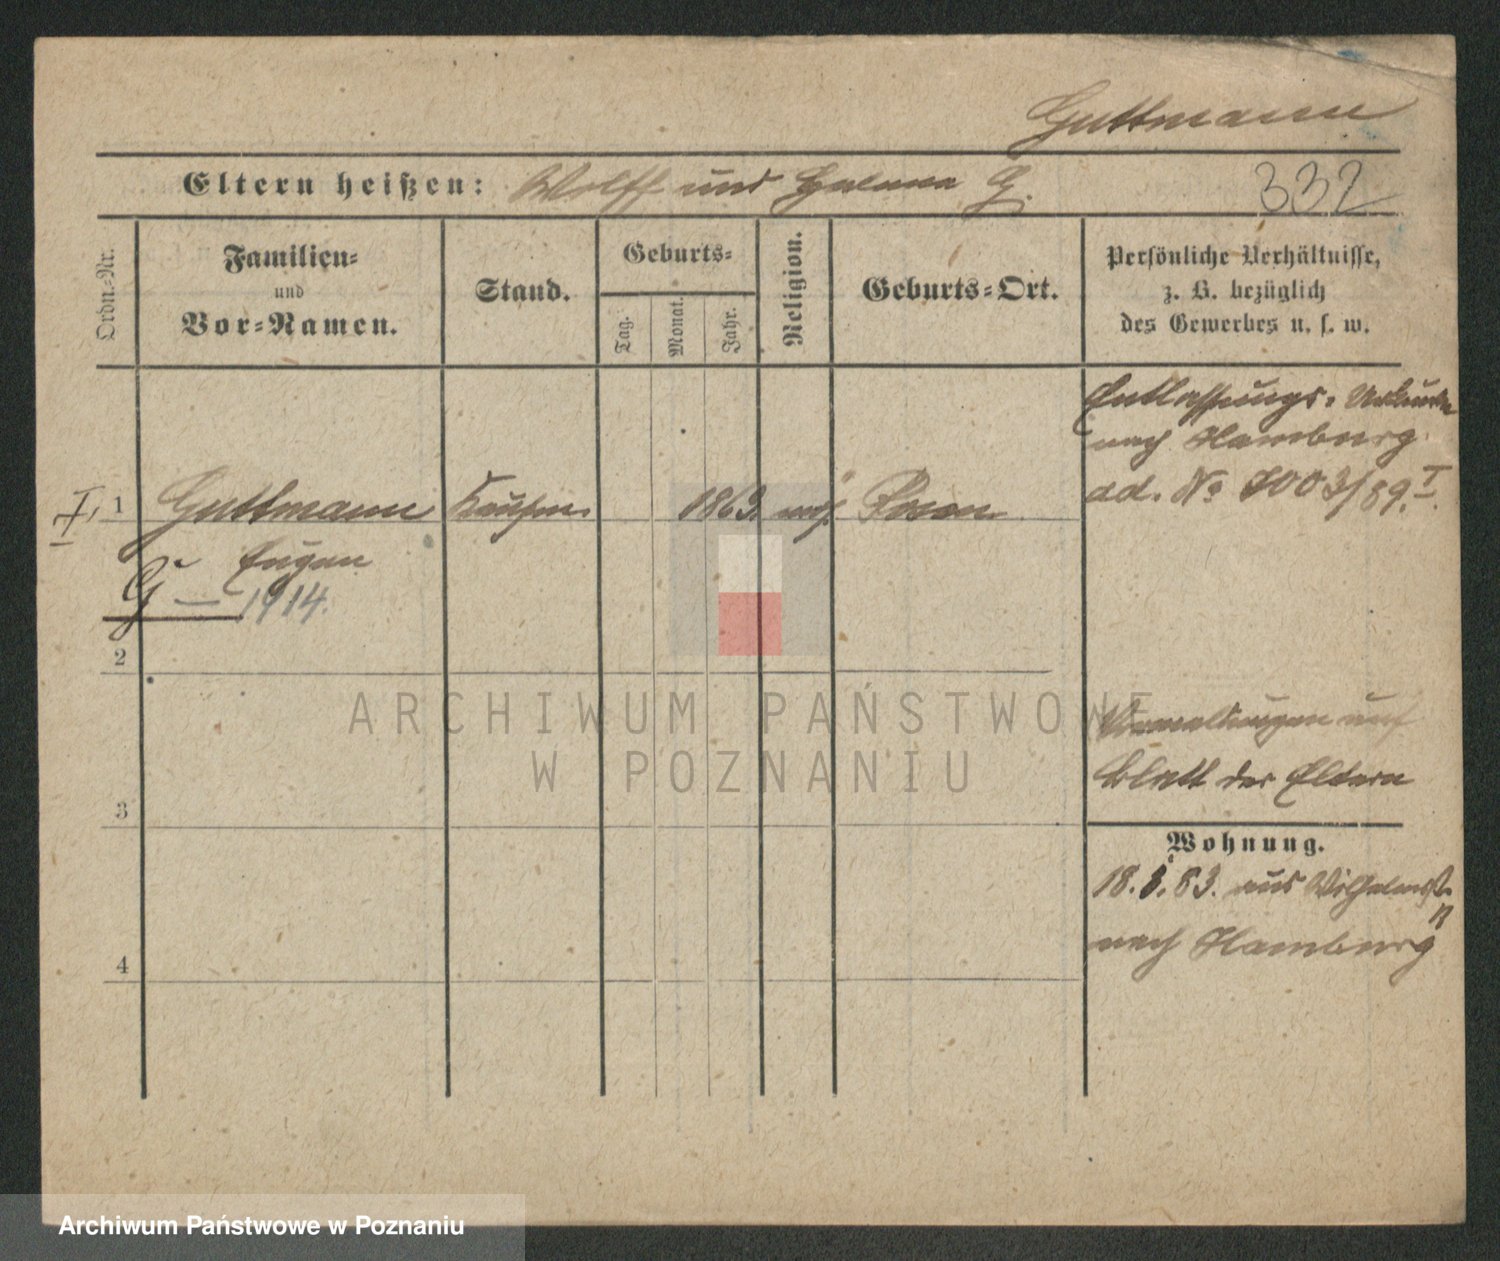 Guttmann
Eltern heißen: Wolff und Helena G.
332
Ordn.-Nr.
Familien-
und
Vor-Namen.
Stand.
Geburts-
Tag.
Monat.
Jahr.
Religion.
Geburts-Ort.
Persönliche Verhältnisse,
z. B. bezüglich
des Gewerbes u. s. w.
Entlassungs-Urkunde
nach Hamburg
ad. No 7003/89. I.
I.
1
Guttmann
Kaufm.
1863.
mos.
Posen
Eugen
G — 1914.
2
auf
Blatt der Eltern
3
Wohnung.
18. 8. 83. aus Wilhelmstr.
nach Hamburg
4
ARCHIWUM PAŃSTWOWE
W POZNANIU
Archiwum Państwowe w Poznaniu